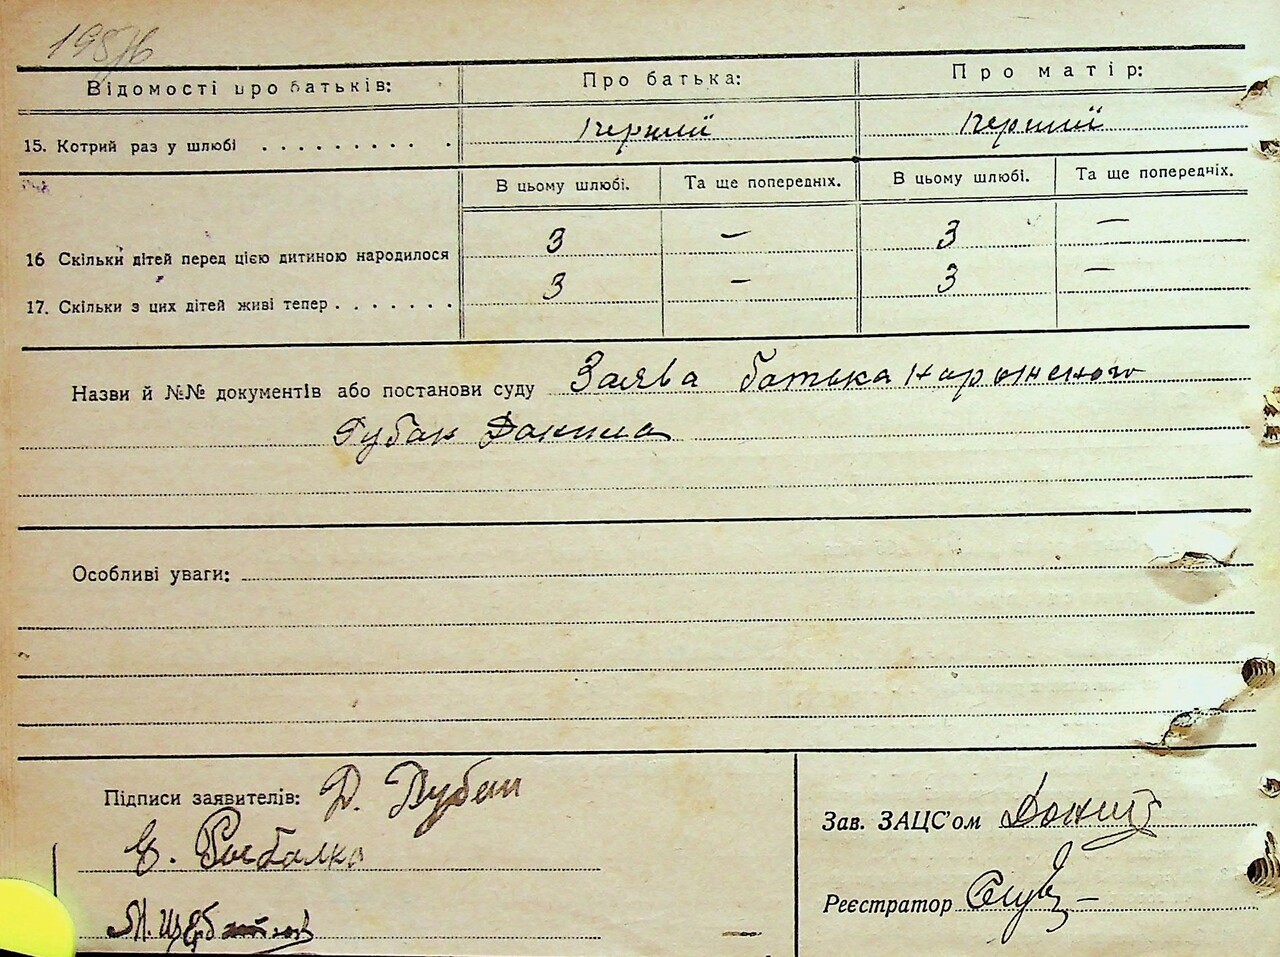 1957/6
Відомості про батьків: Про батька: Про матір:
15. Котрий раз у шлюбі . . . . . . . . . . перший перший
В цьому шлюбі. Та ще попередніх. В цьому шлюбі. Та ще попередніх.
16 Скільки дітей перед цією дитиною народилося 3 — 3 —
17. Скільки з цих дітей живі тепер . . . . . . . 3 — 3 —
Назви й №№ документів або постанови суду Заява батька
Губак Данила
Особливі уваги:
Підписи заявителів: Д. Губак
Рибалка
Зав. ЗАЦС'ом Доній
М.
Реєстратор